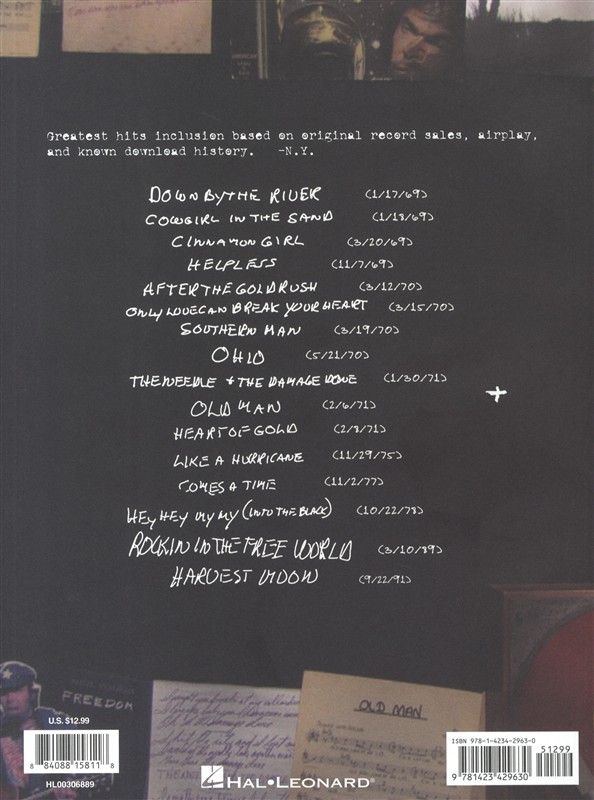 Greatest hits inclusion based on original record sales, airplay,
and known download history. -N.Y.
DOWN BY THE RIVER (1/17/69)
COWGIRL IN THE SAND (1/18/69)
CINNAMON GIRL (3/20/69)
HELPLESS (11/7/69)
AFTER THE GOLDRUSH (3/12/70)
ONLY LOVE CAN BREAK YOUR HEART (3/15/70)
SOUTHERN MAN (3/19/70)
OHIO (5/21/70)
THE NEEDLE + THE DAMAGE DONE (1/30/71)
OLD MAN (2/6/71)
HEART OF GOLD (2/8/71)
LIKE A HURRICANE (11/29/75)
COMES A TIME (11/2/77)
HEY HEY MY MY (INTO THE BLACK) (10/22/78)
ROCKIN IN THE FREE WORLD (3/10/89)
HARVEST MOON (9/22/91)
FREEDOM
OLD MAN
U.S. $12.99
8 84088 15811 8
HL00306889
HAL•LEONARD®
ISBN 978-1-4234-2963-0
51299
9 781423 429630